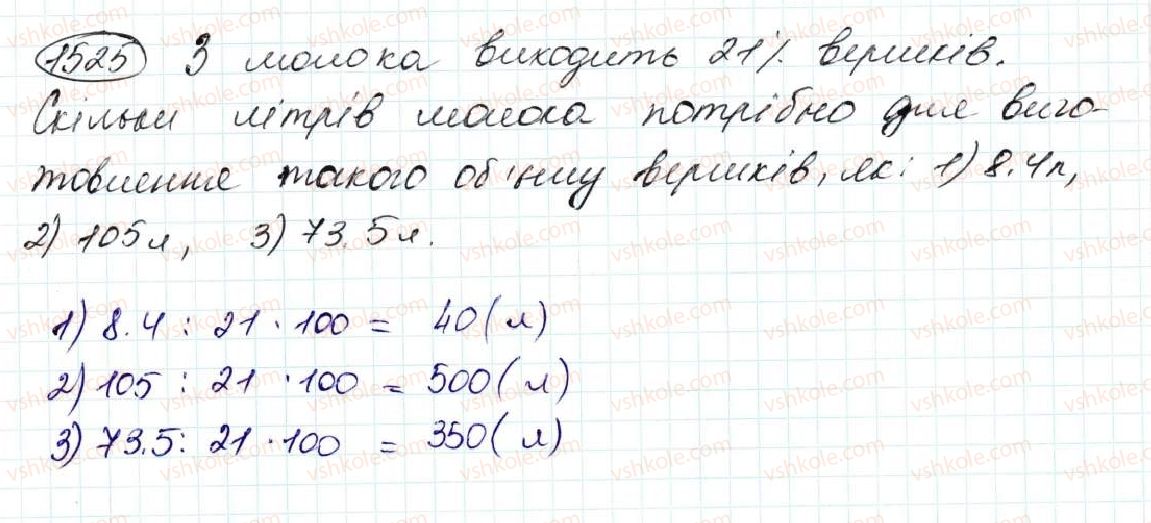 1525 З молока виходить 21% вершків.
Скільки літрів молока потрібно для виго-
товлення такого об'єму вершків, як: 1) 8.4л,
2) 105л, 3) 73.5л.
1) 8.4 : 21 · 100 = 40(л)
2) 105 : 21 · 100 = 500(л)
3) 73.5 : 21 · 100 = 350(л)
vshkole.com